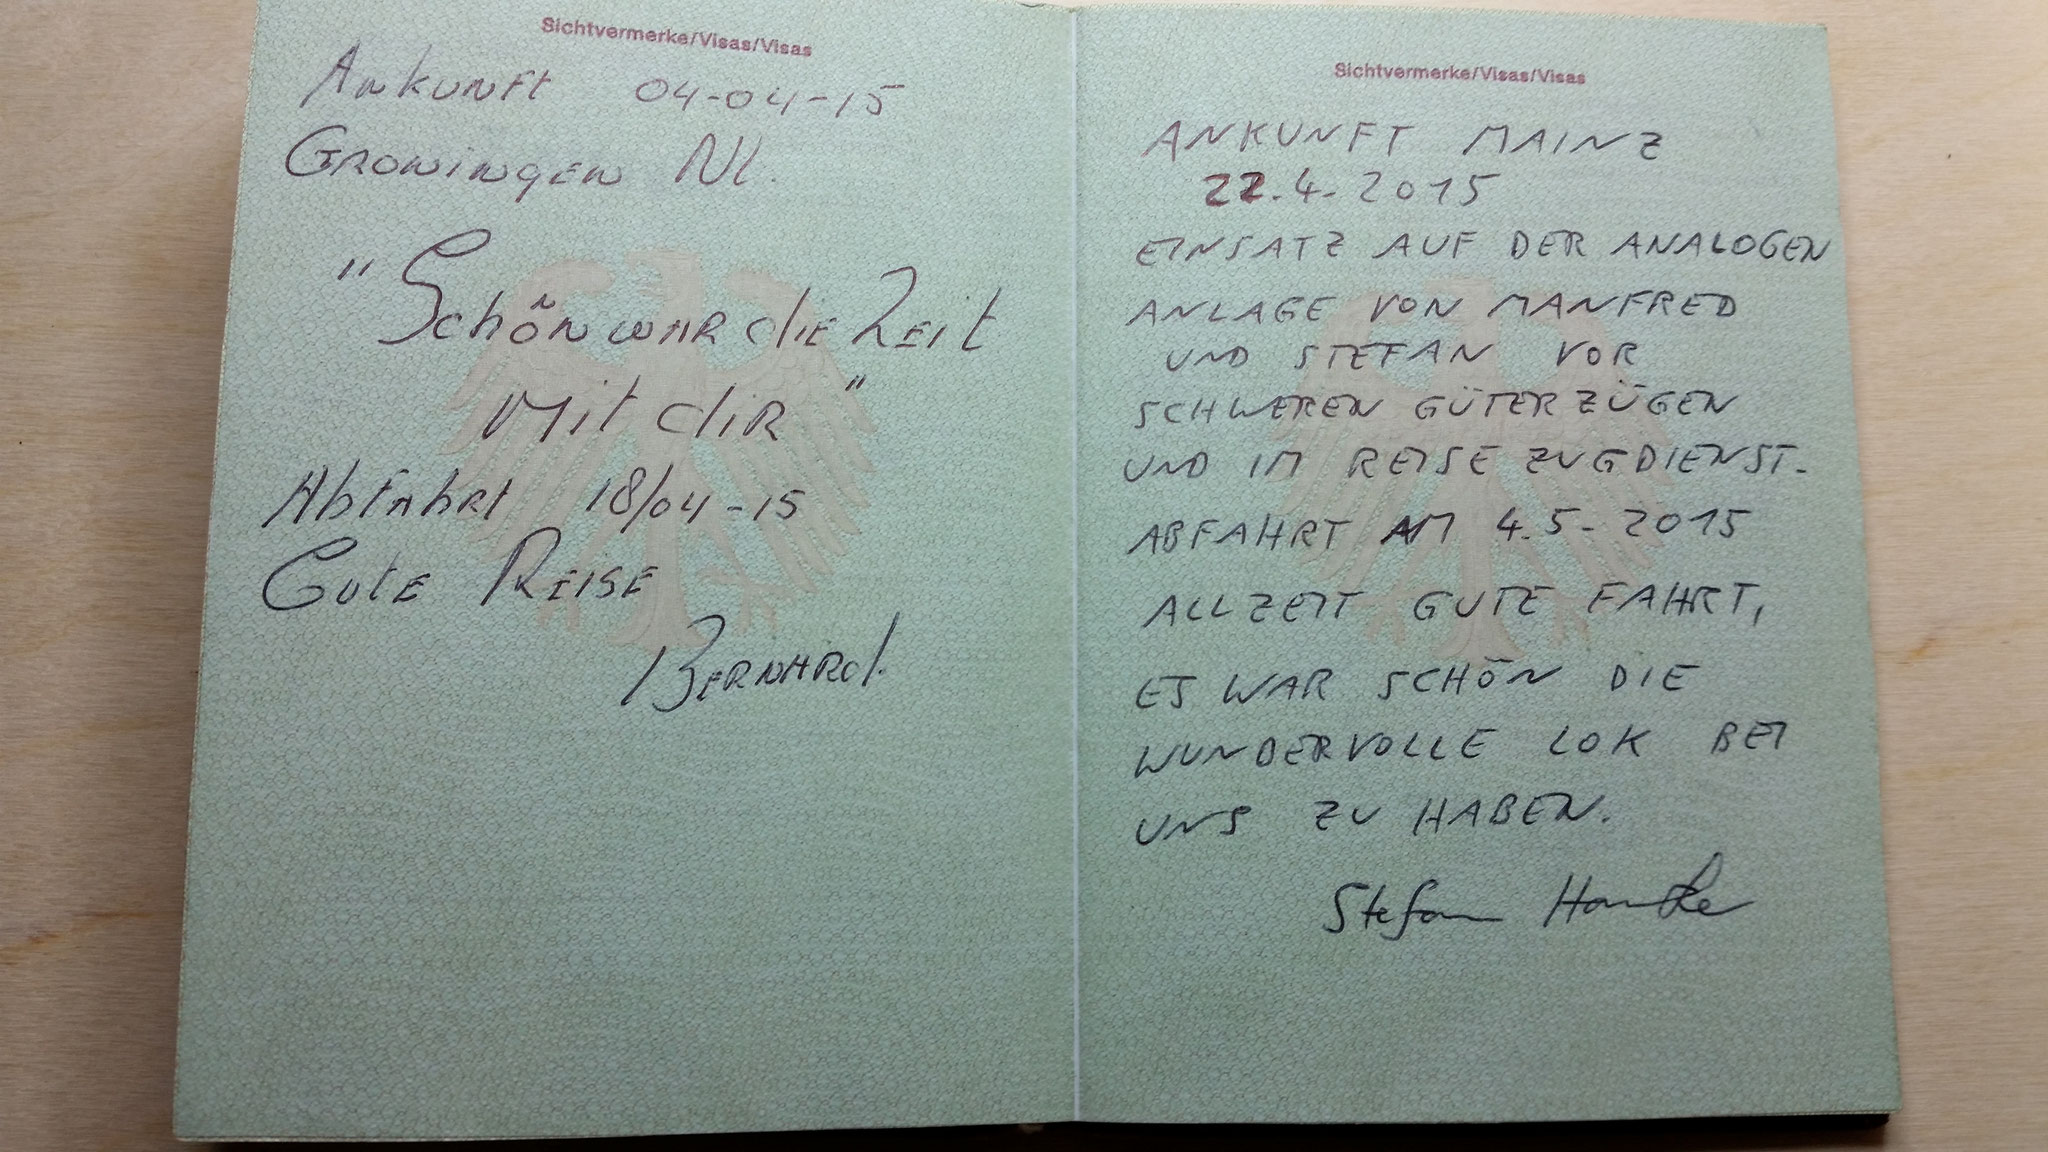 Sichtvermerke/Visas/Visas
Ankunft 04-04-15
Groningen Nl.
"Schön war die Zeit
Mit dir"
Abfahrt 18/04-15
Gute Reise
Bernhard.
Sichtvermerke/Visas/Visas
ANKUNFT MAINZ
22.4.2015
EINSATZ AUF DER ANALOGEN
ANLAGE VON MANFRED
UND STEFAN VOR
SCHWEREN GÜTERZÜGEN
UND IM REISEZUGDIENST.
ABFAHRT AM 4.5.2015
ALLZEIT GUTE FAHRT,
ES WAR SCHÖN DIE
WUNDERVOLLE LOK BEI
UNS ZU HABEN.
Stefan